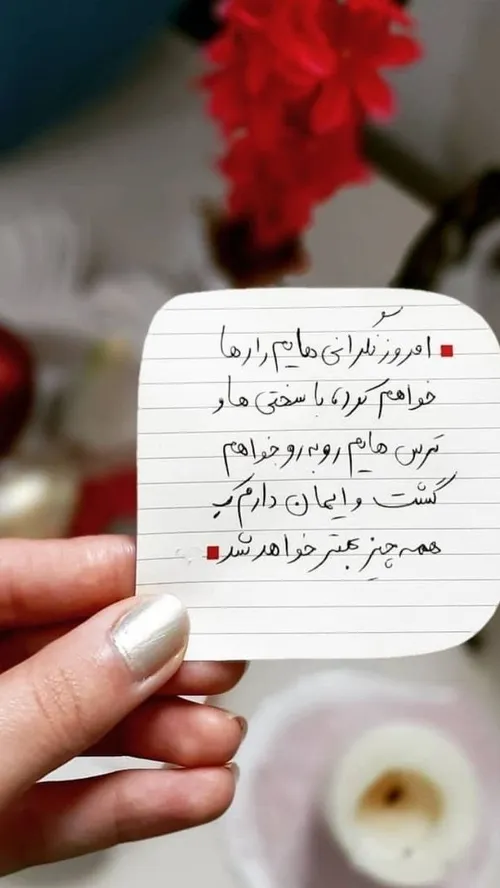 امروز نگرانی هایم را رها
خواهم کرد، با سختی ها و
ترس هایم روبه رو خواهم
گشت و ایمان دارم که
همه چیز بهتر خواهد شد